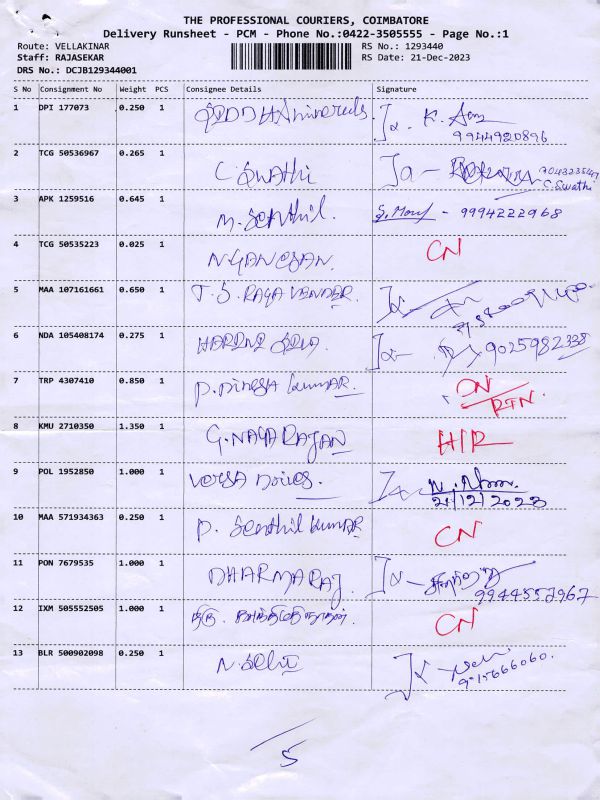 THE PROFESSIONAL COURIERS, COIMBATORE
Delivery Runsheet - PCM - Phone No.:0422-3505555 - Page No.:1
Route: VELLAKINAR RS No.: 1293440
Staff: RAJASEKAR RS Date: 21-Dec-2023
DRS No.: DCJB129344001
S No Consignment No Weight PCS Consignee Details Signature
1 DPI 177073 0.250 1
K.
9944920896
2 TCG 50536967 0.265 1 C. Swathi
C. Swathi
3 APK 1259516 0.645 1 M. Senthil. - 9994222968
4 TCG 50535223 0.025 1 N GANESAN. CN
5 MAA 107161661 0.650 1 T. S. RAGAVENDER.
6 NDA 105408174 0.275 1 9025982338
7 TRP 4307410 0.850 1 P. Dinesh kumar. DN
RTN.
8 KMU 2710350 1.350 1 G. NAGARAJAN H/R
9 POL 1952850 1.000 1 Versa Drives.
21/12/2023
10 MAA 571934363 0.250 1 P. Senthil kumar CN
11 PON 7679535 1.000 1 DHARMARAJ
9944557967
12 IXM 505552505 1.000 1 திரு. CN
13 BLR 500902098 0.250 1
9715666060.
5